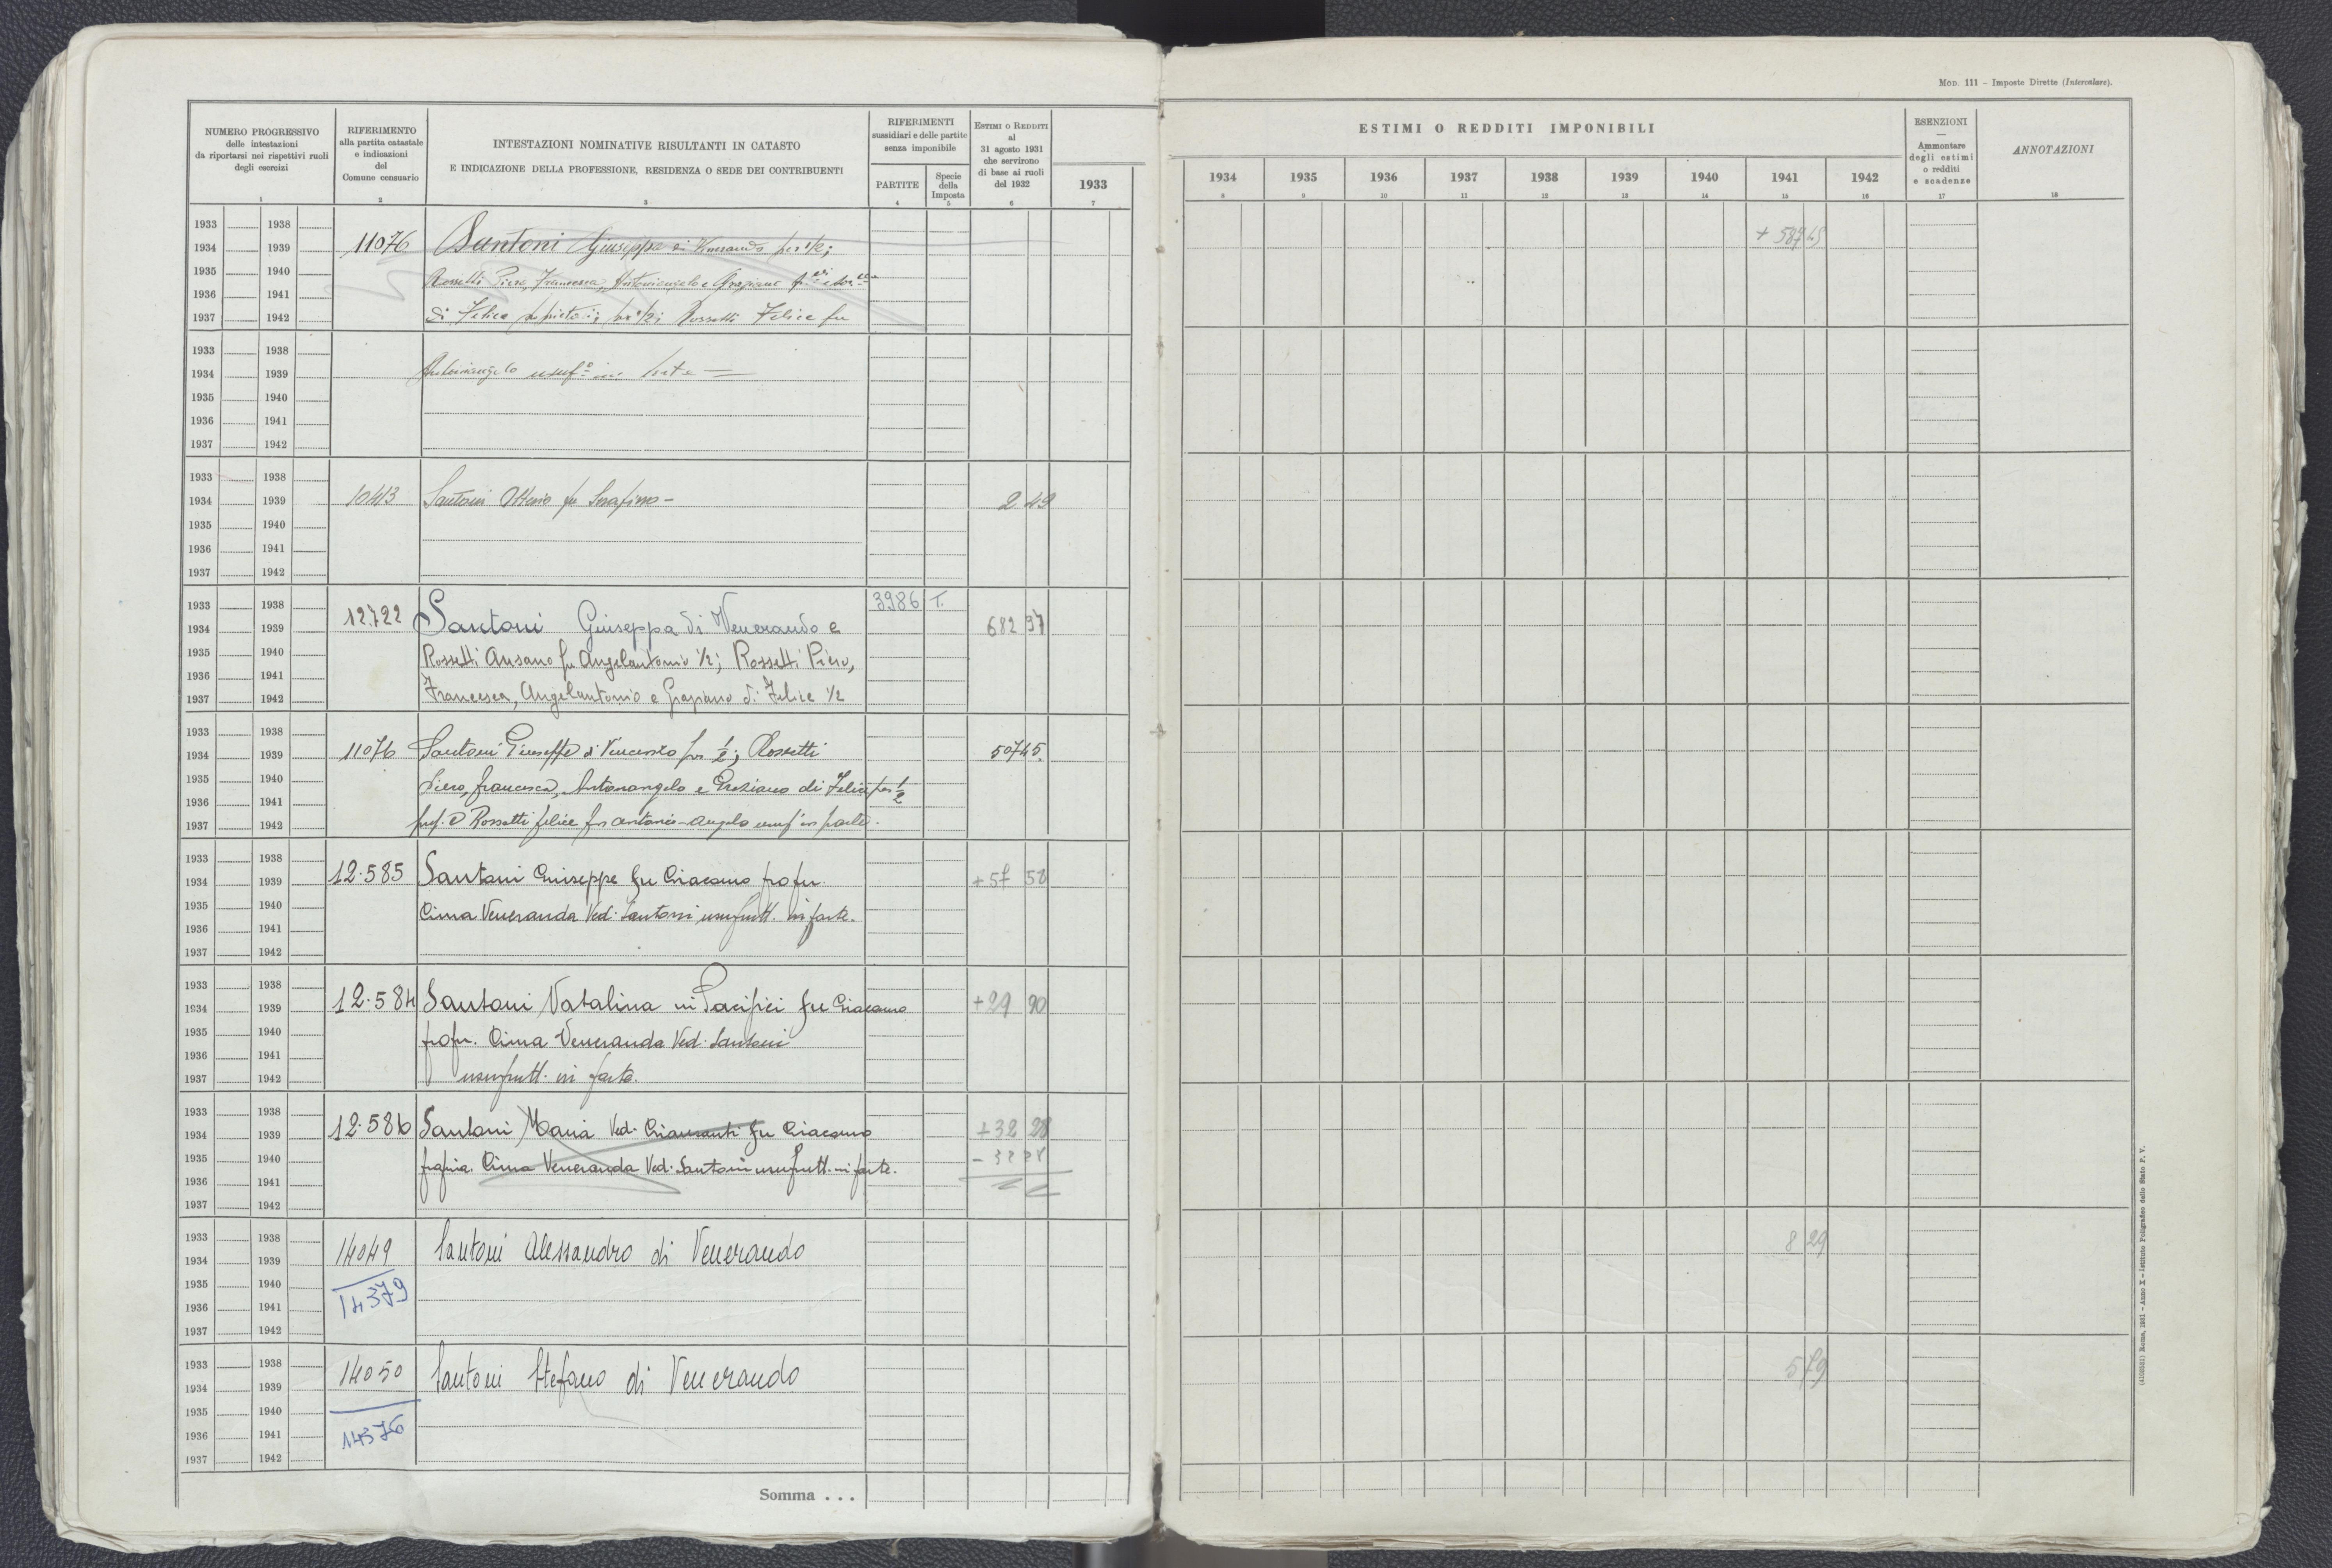 Mod. 111 – Imposte Dirette (Intercalare).
NUMERO PROGRESSIVO
delle intestazioni
da riportarsi nei rispettivi ruoli
degli esercizi
1
RIFERIMENTO
alla partita catastale
e indicazioni
del
Comune censuario
2
INTESTAZIONI NOMINATIVE RISULTANTI IN CATASTO
E INDICAZIONE DELLA PROFESSIONE, RESIDENZA O SEDE DEI CONTRIBUENTI
3
RIFERIMENTI
sussidiari e delle partite
senza imponibile
PARTITE
4
Specie
della
Imposta
5
ESTIMI O REDDITI
al
31 agosto 1931
che servirono
di base ai ruoli
del 1932
6
1933
7
ESTIMI O REDDITI IMPONIBILI
1934 1935 1936 1937 1938 1939 1940 1941 1942
8 9 10 11 12 13 14 15 16
ESENZIONI
—
Ammontare
degli estimi
o redditi
e scadenze
17
ANNOTAZIONI
18
1933 1938
1934 1939 11076 Santoni Giuseppa di Venerando per 1/2; + 587 45
1935 1940 Rossetti Piero, Francesca, Antoniangelo e Graziano
1936 1941
1937 1942 di Felice proprietari per 1/2; Rossetti Felice fu
1933 1938
1934 1939 Antoniangelo usuf.º in parte =
1935 1940
1936 1941
1937 1942
1933 1938
1934 1939 10413 Santoni Ottavio fu Serafino – 2 49
1935 1940
1936 1941
1937 1942
1933 1938 3986 T.
1934 1939 12722 Santoni Giuseppa di Venerando e 682 97
1935 1940 Rossetti Ansano fu Angelantonio 1/2; Rossetti Piero,
1936 1941
1937 1942 Francesca, Angelantonio e Graziano di Felice 1/2
1933 1938
1934 1939 11076 Santoni Giuseppe di Vincenzo per 1/2; Rossetti 507 45.
1935 1940 Piero, Francesca, Antonangelo e Graziano di Felice per 1/2
1936 1941
1937 1942 prop. e Rossetti felice fu Antonio-Angelo usuf in parte.
1933 1938
1934 1939 12.585 Santoni Giuseppe fu Giacomo propr. +57 58
1935 1940 Cima Veneranda Ved. Santoni usufrutt. in parte.
1936 1941
1937 1942
1933 1938
1934 1939 12.584 Santoni Natalina in Pacifici fu Giacomo +29 90
1935 1940 propr. Cima Veneranda Ved. Santoni
1936 1941
1937 1942 usufrutt. in parte.
1933 1938
1934 1939 12.586 Santoni Maria Ved. Giamanti fu Giacomo +32 28
1935 1940 propria. Cima Veneranda Ved. Santoni usufrutt. in parte. – 32 28
1936 1941
1937 1942
1933 1938
1934 1939 14049 Santoni Alessandro di Venerando 8 29
1935 1940 14379
1936 1941
1937 1942
1933 1938
1934 1939 14050 Santoni Stefano di Venerando 5 79
1935 1940
1936 1941 14376
1937 1942
Somma . . .
(4100531) Roma, 1931 – Anno X – Istituto Poligrafico dello Stato P. V.